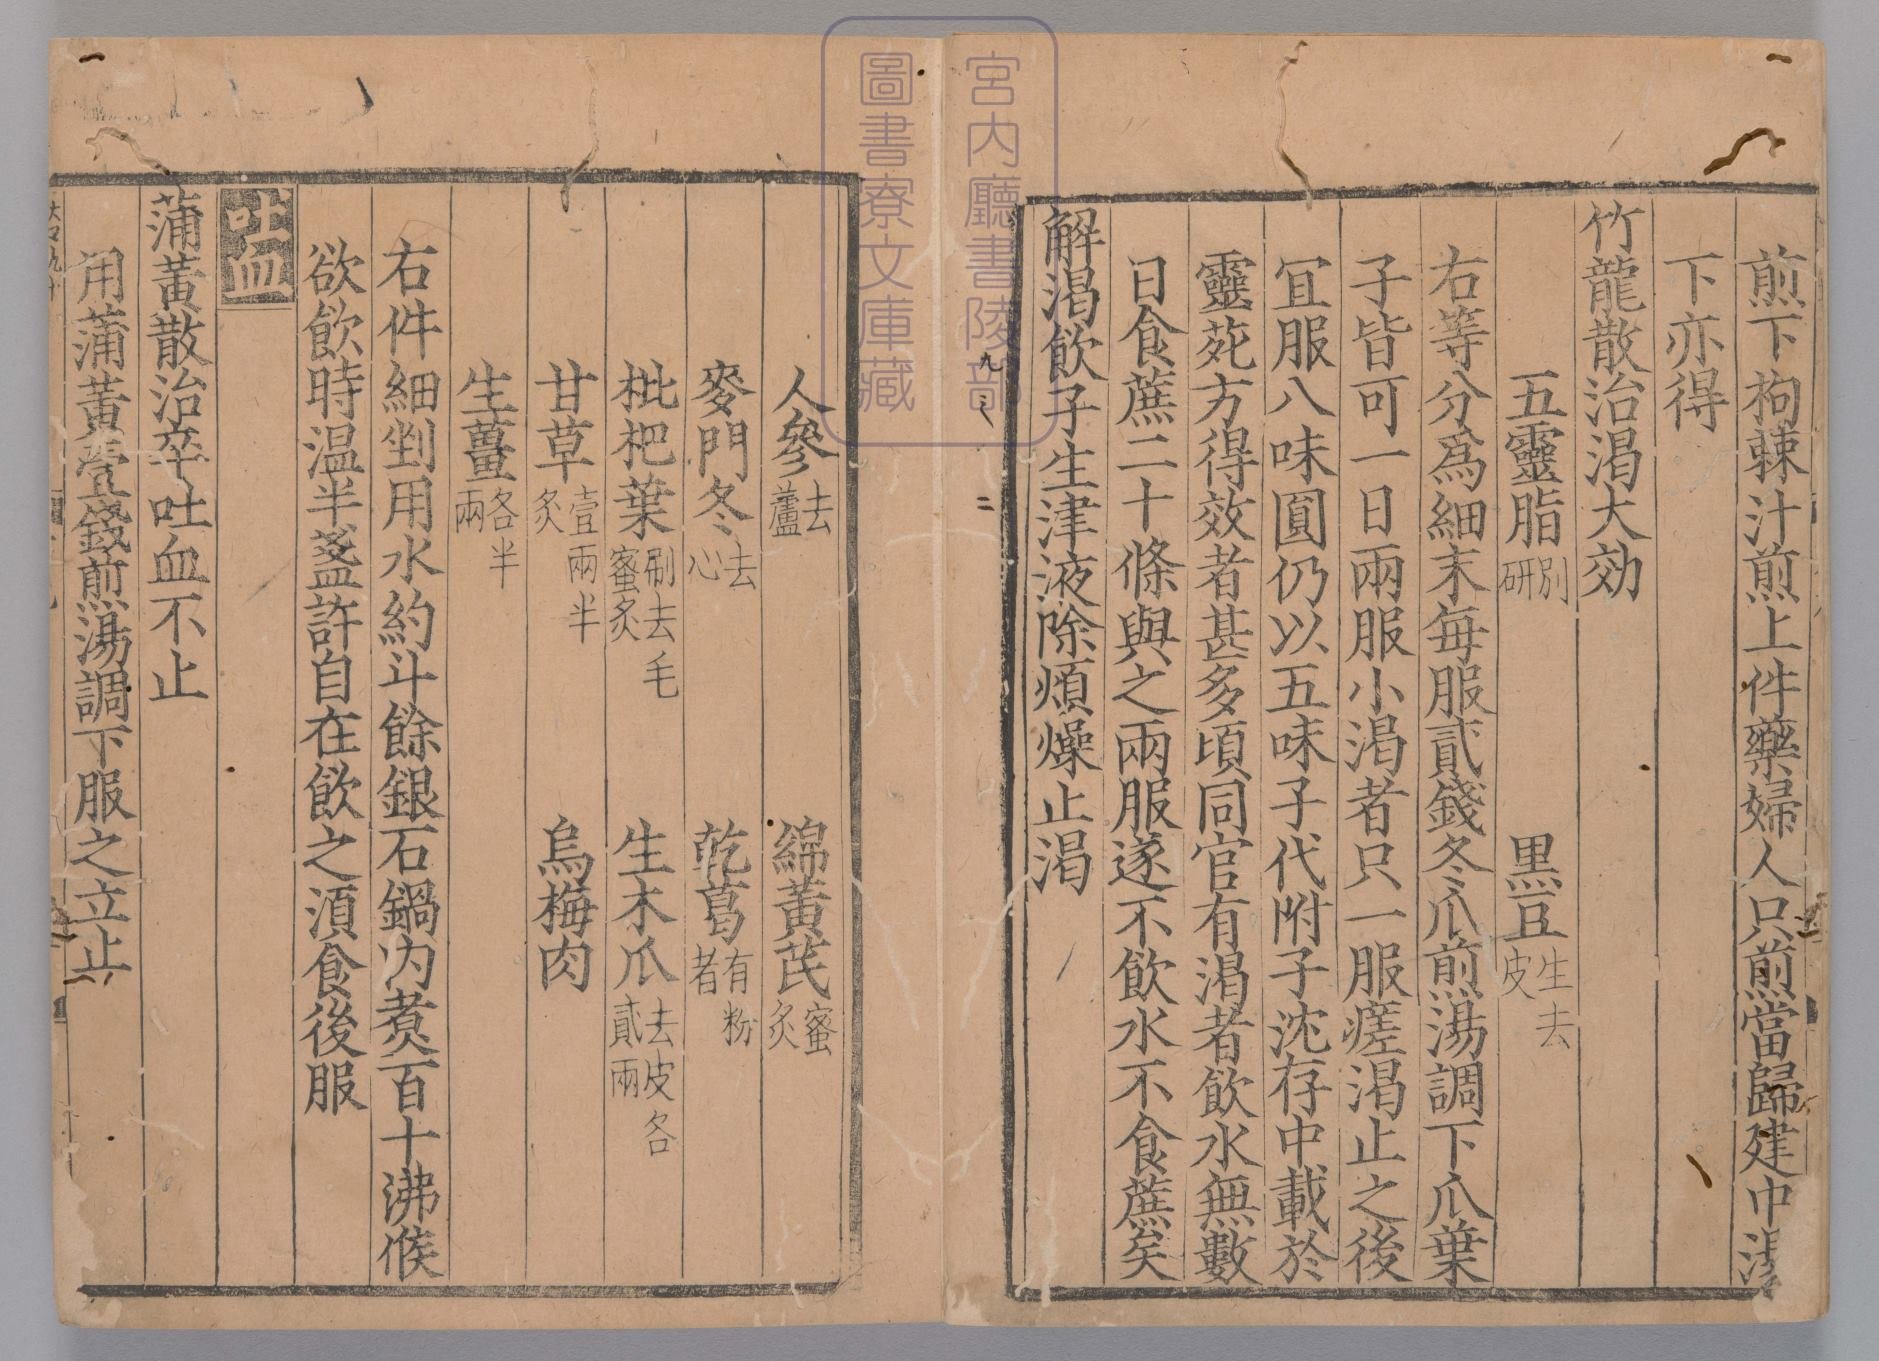 煎下拘棘汁煎上件藥婦人只煎當歸建中湯
下亦得
竹龍散治渴大効
五靈脂別研 黑豆生去皮
右等分爲細末每服貳錢冬瓜煎湯調下瓜葉
子皆可一日兩服小渴者只一服瘥渴止之後
冝服八味圓仍以五味子代附子沈存中載於
靈苑方得效者甚多頃同官有渴者飲水無數
日食蔗二十條與之兩服遂不飲水不食蔗矣
解渴飲子生津液除煩燥止渴
人參去蘆 綿黃芪蜜炙
麥門冬去心 乾葛有粉者
枇杷葉刷去毛蜜炙 生木瓜去皮各貳兩
甘草壹兩半炙 烏梅肉
生薑各半兩
右件細剉用水約斗餘銀石鍋内煑百十沸候
欲飲時温半盞許自在飲之湏食後服
吐血
蒲黃散治卒吐血不止
用蒲黃壹錢煎湯調下服之立止
宮内廳書陵部
圖書寮文庫藏
九之
二